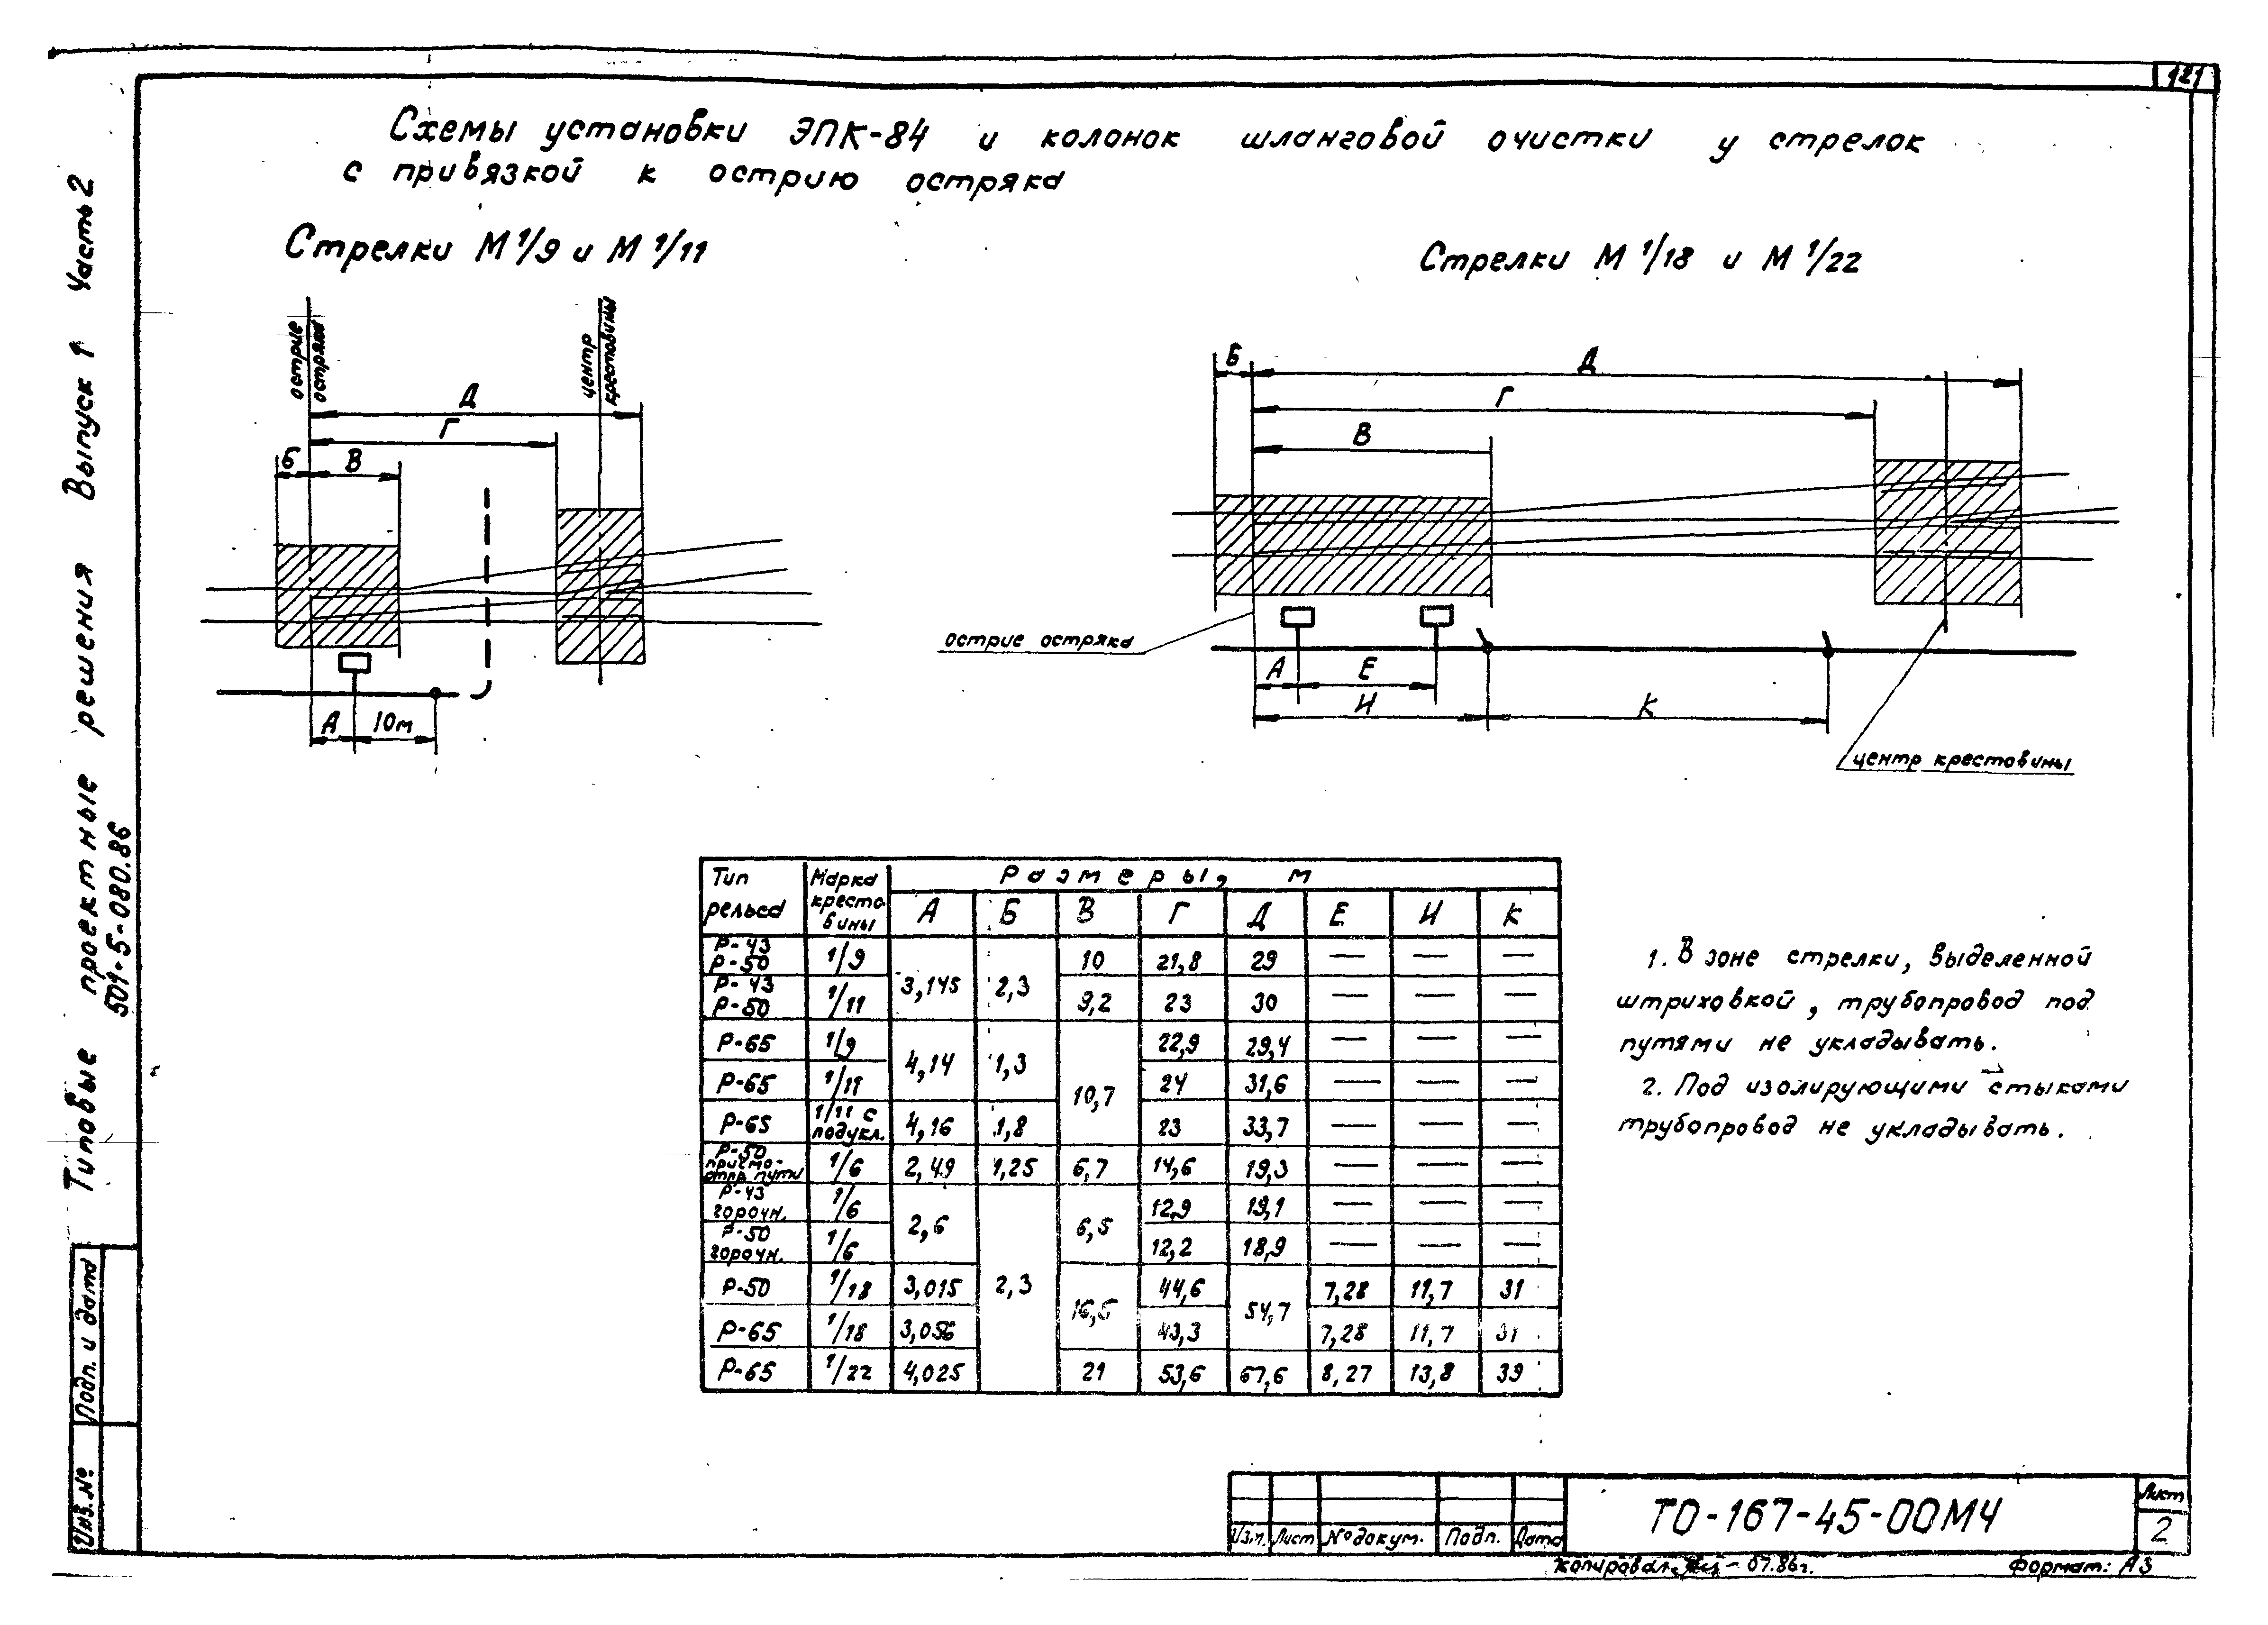 121
Схемы установки ЭПК-84 и колонок шланговой очистки у стрелок
с привязкой к острию остряка
Стрелки М 1/9 и М 1/11
Стрелки М 1/18 и М 1/22
острие
остряка
центр
крестовины
Д
Г
Б В
А 10м
Б Д
Г
В
острие остряка
А Е
И К
центр крестовины
Тип рельса Марка крестовины Размеры, м
А Б В Г Д Е И К
Р-43 Р-50 1/9 3,145 2,3 10 21,8 29 — — —
Р-43 Р-50 1/11 9,2 23 30 — — —
Р-65 1/9 4,14 1,3 10,7 22,9 29,4 — — —
Р-65 1/11 24 31,6 — — —
Р-65 1/11 с подукл. 4,16 1,8 23 33,7 — — —
Р-50 1/6 2,49 1,25 6,7 14,6 19,3 — — —
Р-43 горочн. 1/6 2,6 2,3 6,5 12,9 19,1 — — —
Р-50 горочн. 1/6 12,2 18,9 — — —
Р-50 1/18 3,015 16,5 44,6 54,7 7,28 11,7 31
Р-65 1/18 3,056 43,3 7,28 11,7 31
Р-65 1/22 4,025 21 53,6 67,6 8,27 13,8 39
1. В зоне стрелки, выделенной
штриховкой, трубопровод под
путями не укладывать.
2. Под изолирующими стыками
трубопровод не укладывать.
Типовые проектные решения Выпуск 1 Часть 2
501-5-080.86
Подп. и дата
Инв. №
Изм. Лист № докум. Подп. Дата
ТО-167-45-00МЧ
Лист
2
Копировал: - 07.86г.
Формат: А3